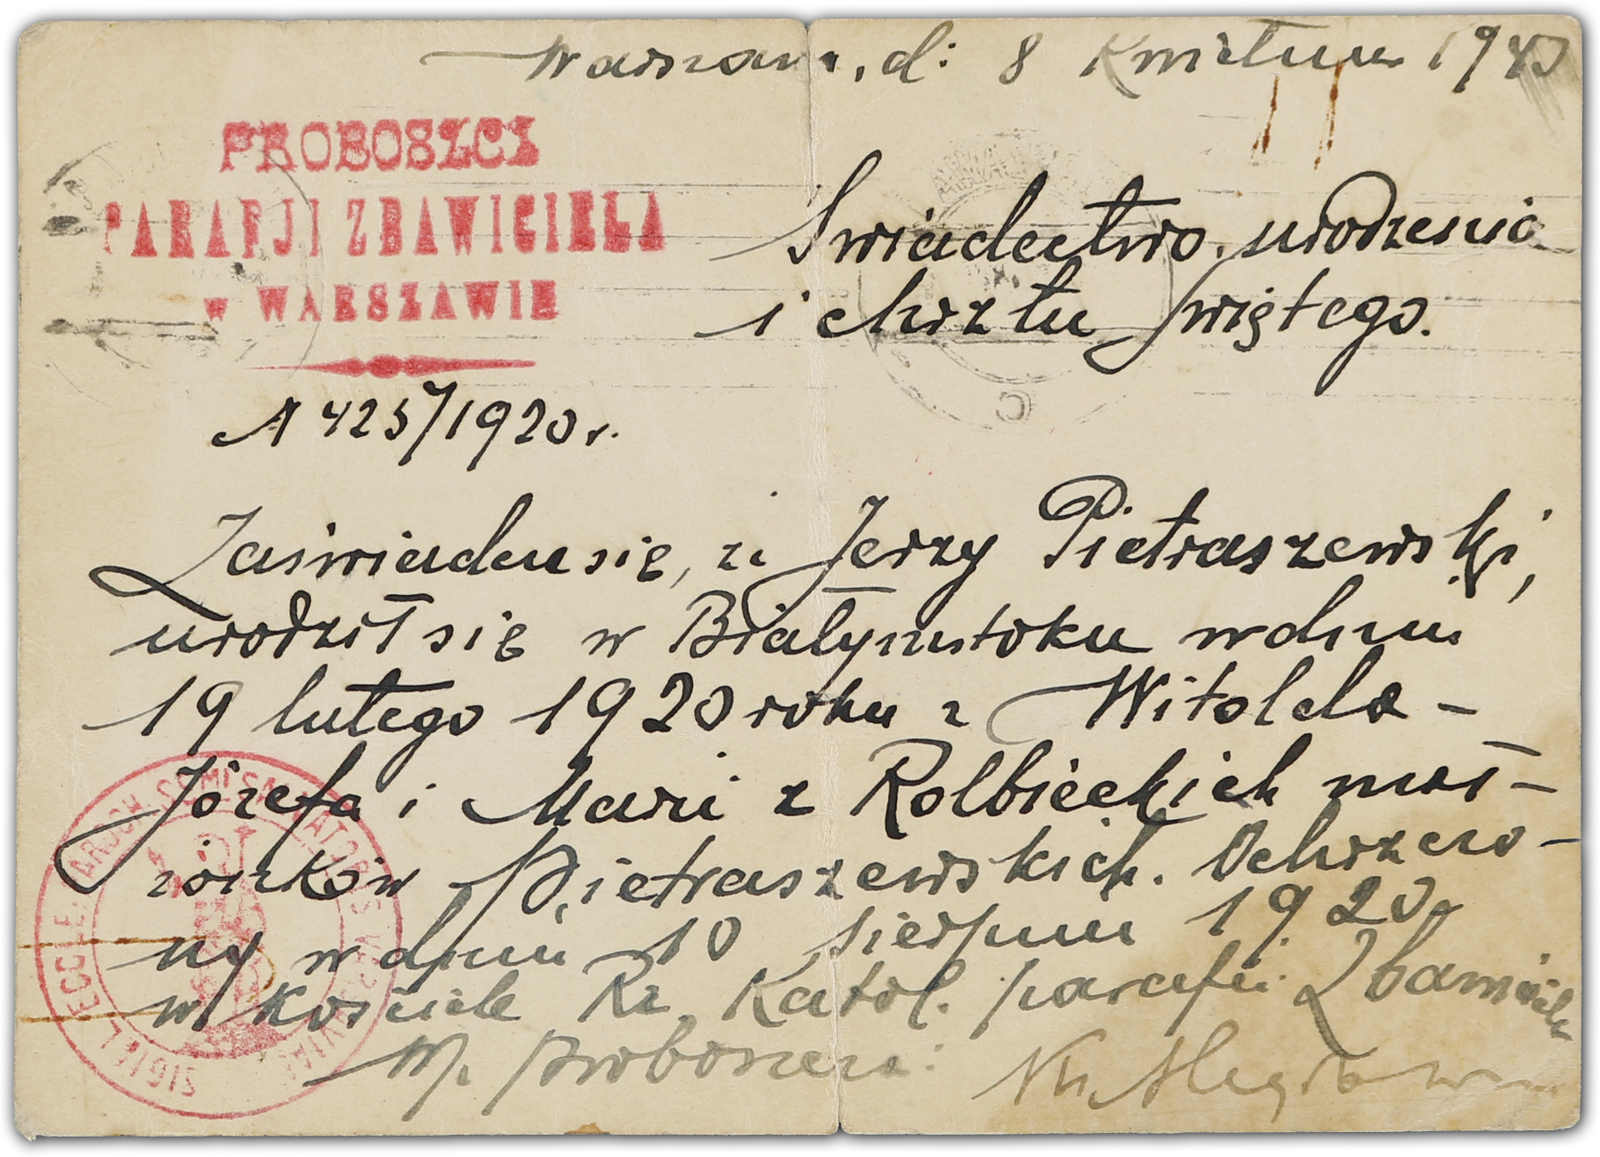 Warszawa, d: 8 Kwietnia 1943
PROBOSZCZ
PARAFJI ZBAWICIELA
w WARSZAWIE
Świadectwo urodzenia
i chrztu świętego.
N 425/1920 r.
Zaświadcza się, że Jerzy Pietraszewski,
urodził się w Białymstoku w dniu
19 lutego 1920 roku z Witolda -
Józefa i Marii z Rolbieckich mał-
żonków Pietraszewskich. Ochrzczo-
ny w dniu 10 sierpnia 1920
w Kościele Rz. Katol. parafii Zbawiciela
W. proboszcza:
SIGILL. ECCLE. PAROCH.